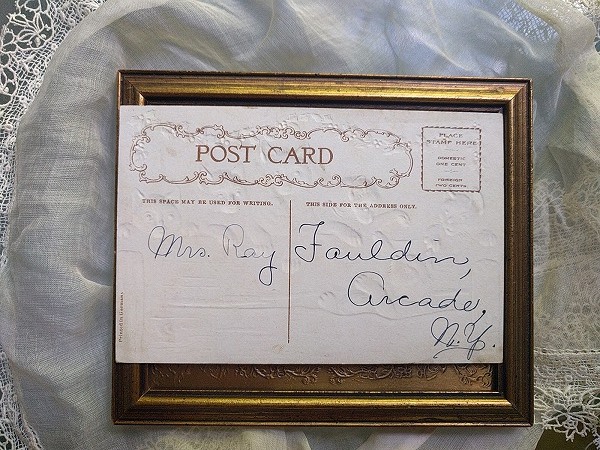 POST CARD
PLACE
STAMP HERE
DOMESTIC
ONE CENT
FOREIGN
TWO CENTS
THIS SPACE MAY BE USED FOR WRITING.
THIS SIDE FOR THE ADDRESS ONLY.
Mrs. Ray Fauldin,
Arcade,
N.Y.
Printed in Germany